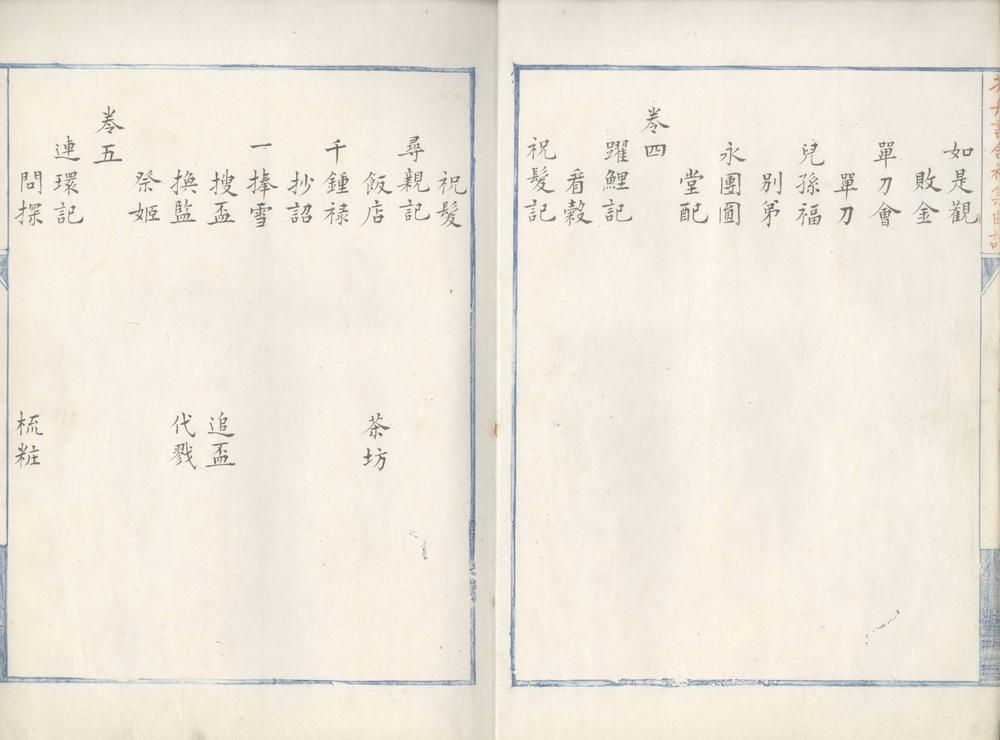 如是觀
敗金
單刀會
單刀
兒孫福
別弟
永團圓
堂配
卷四
躍鯉記
看穀
祝髮記
祝髮
尋親記
飯店 茶坊
千鍾祿
抄詔
一捧雪
搜盃 追盃
換監 代戮
祭姬
卷五
連環記
問探 梳粧